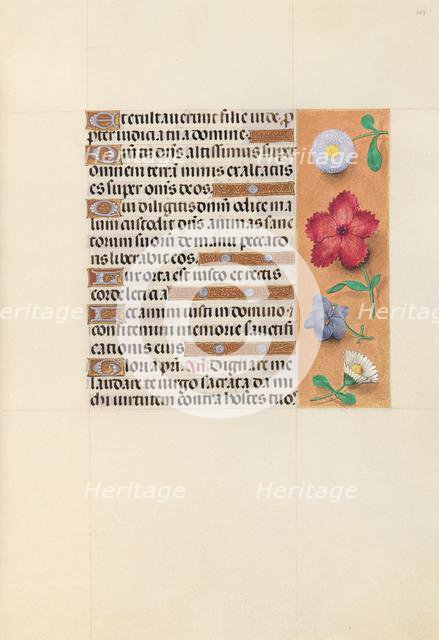 Et exultaverunt filie iude: p
pter iudicia tua domine.
Qm̄ tu dn̄s altissimus super
omnem terrā: nimis exaltatus
es super om̄s deos.
Qui diligitis dn̄m odite ma
lum: custodit dn̄s animas sanc
torum suoꝝ de manu peccato
ris liberabit eos.
Lux orta est iusto: et rectis
corde leticia.
Letamini iusti in domino:
confitemini memorie sanctifi
cationis eius.
Gloria pr̄i. An̄. Dignare me
laudare te virgo sacrata: da mi
chi virtutem contra hostes tuos.
Heritage
Heritage
Heritage
Heritage
Heritage
Heritage